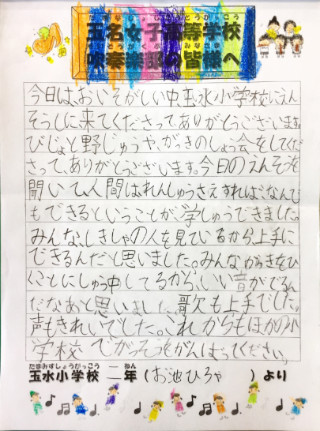 玉名女子高等学校
吹奏楽部の皆様へ
今日は、おいそがしい中、玉水小学校にえん
そうしに来てくださってありがとうございます。
びじょと野じゅうや、がっきのしょう会をしてくだ
さって、ありがとうございます。今日のえんそうを
聞いて、人間はれんしゅうさえすれば、なんで
もできるということが学しゅうできました。
みんな、しきしゃの人を見ているから上手に
できるんだと思いました。みんながっきをひ
くことにしゅう中してるから、いい音がでるん
だなあと思いました。歌も上手でした。
声もきれいでした。これからもほかの小
学校でがっそうをがんばってください。
たまみずしょうがっこう ねん
玉水小学校 二年（お池ひろや ）より